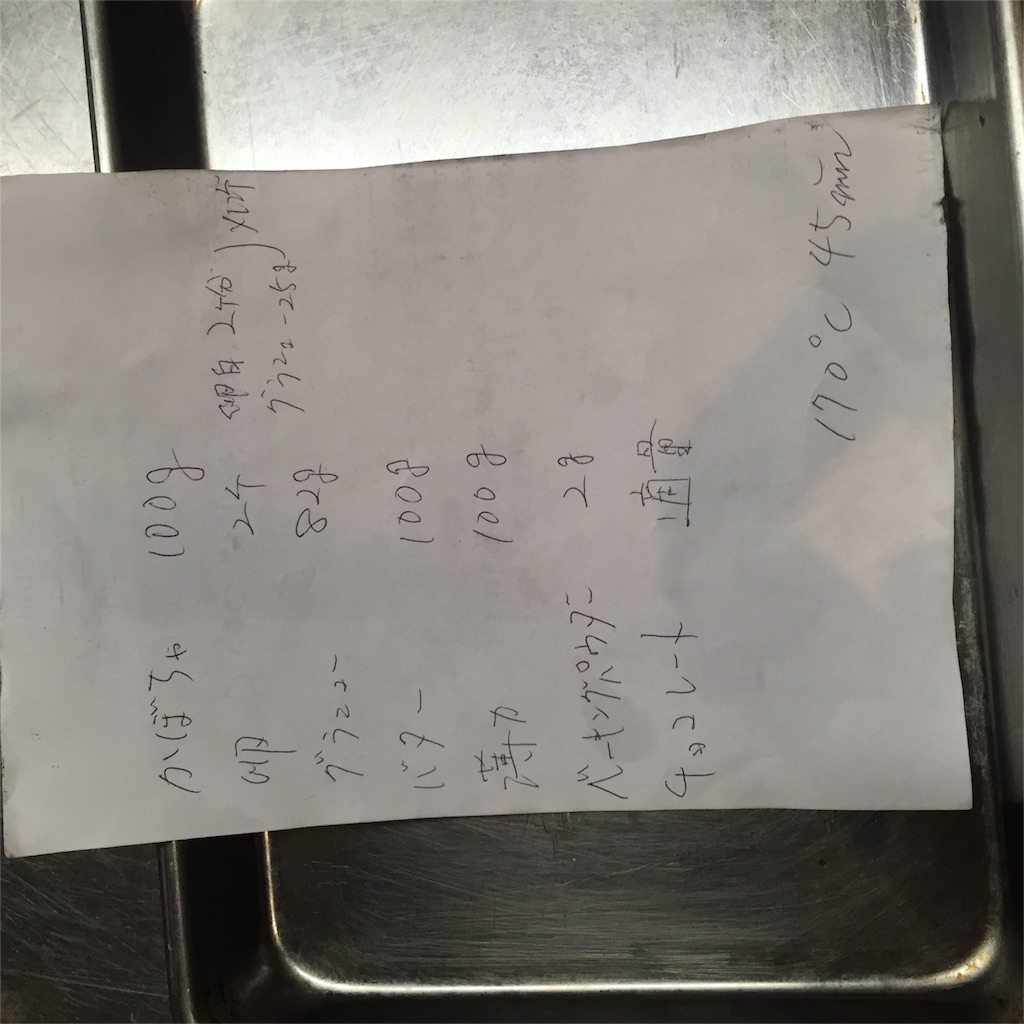 かぼちゃ 100g
卵 2ケ 卵白 2ケ分 )
グラニュー 82g グラニュー 25g
バター 100g
薄力 100g
ベーキングパウダー 2g
チョコレート 適量
170℃ 45min